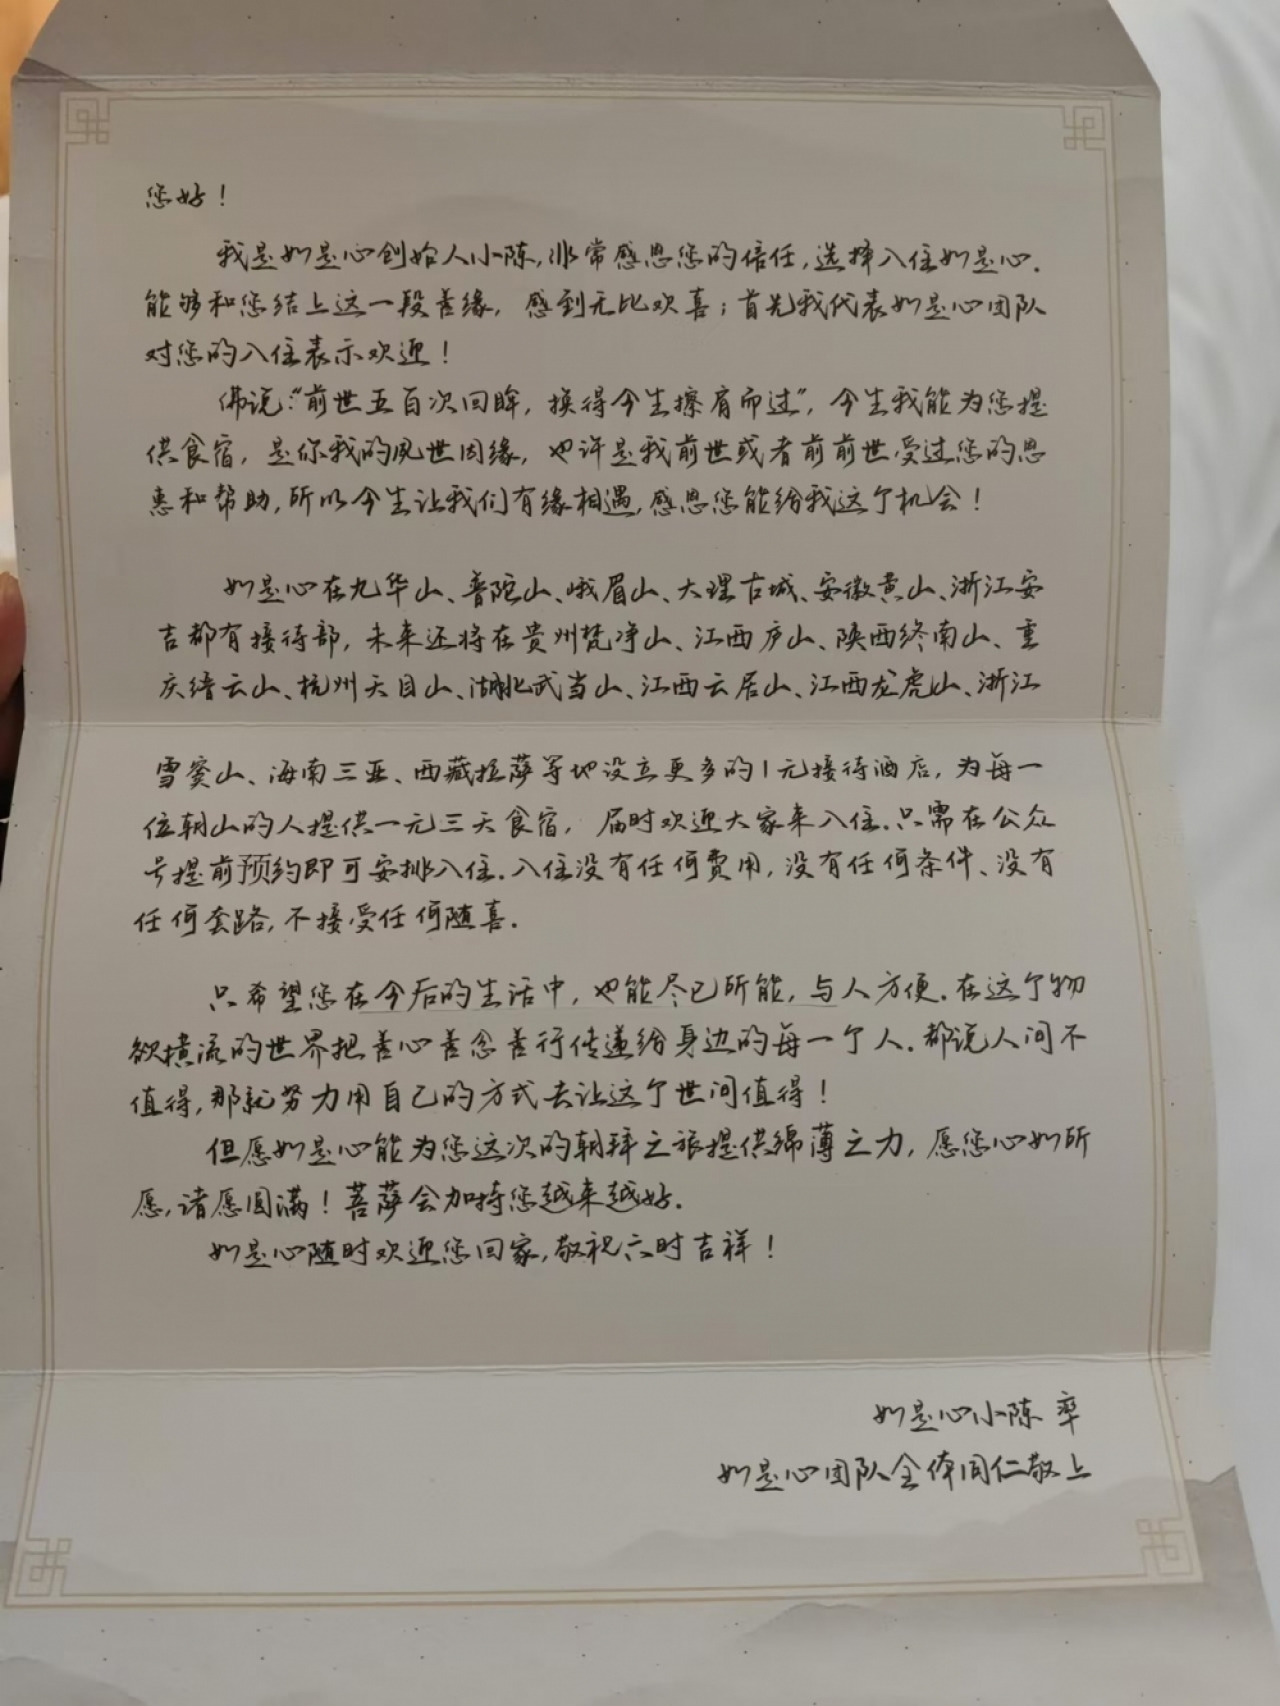 您好！
我是如是心创始人小陈,非常感恩您的信任,选择入住如是心.
能够和您结上这一段善缘，感到无比欢喜；首先我代表如是心团队
对您的入住表示欢迎！
佛说：“前世五百次回眸，换得今生擦肩而过”，今生我能为您提
供食宿，是你我的夙世因缘，也许是我前世或者前前世受过您的恩
惠和帮助,所以今生让我们有缘相遇,感恩您能给我这个机会！
如是心在九华山、普陀山、峨眉山、大理古城、安徽黄山、浙江安
吉都有接待部，未来还将在贵州梵净山、江西庐山、陕西终南山、重
庆缙云山、杭州天目山、湖北武当山、江西云居山、江西龙虎山、浙江
雪窦山、海南三亚、西藏拉萨等地设立更多的1元接待酒店，为每一
位朝山的人提供一元三天食宿，届时欢迎大家来入住.只需在公众
号提前预约即可安排入住.入住没有任何费用，没有任何条件、没有
任何套路,不接受任何随喜.
只希望您在今后的生活中，也能尽己所能，与人方便.在这个物
欲横流的世界把善心善念善行传递给身边的每一个人.都说人间不
值得,那就努力用自己的方式去让这个世间值得！
但愿如是心能为您这次的朝拜之旅提供绵薄之力，愿您心如所
愿,诸愿圆满！菩萨会加持您越来越好.
如是心随时欢迎您回家,敬祝六时吉祥！
如是心小陈 率
如是心团队全体同仁敬上